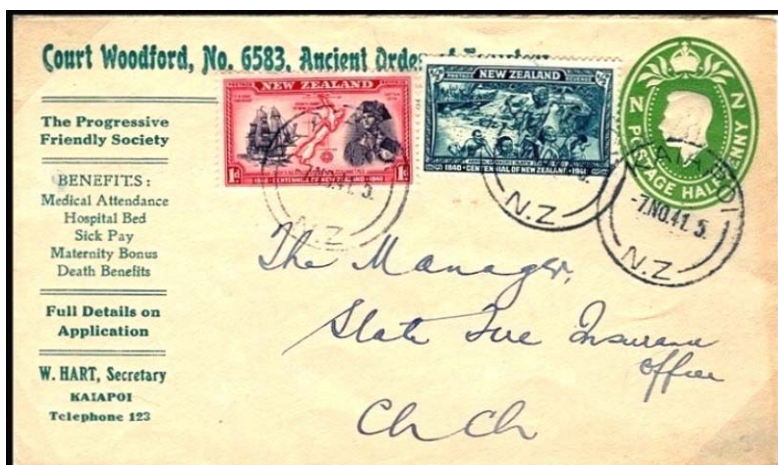 Court Woodford, No. 6583, Ancient Order of
The Progressive
Friendly Society
BENEFITS:
Medical Attendance
Hospital Bed
Sick Pay
Maternity Bonus
Death Benefits
Full Details on
Application
W. HART, Secretary
KAIAPOI
Telephone 123
POSTAGE REVENUE
NEW ZEALAND
1d 1d
1840 CENTENNIAL OF NEW ZEALAND 1940
POSTAGE REVENUE
½d NEW ZEALAND ½d
1840 CENTENNIAL OF NEW ZEALAND 1940
N Z
POSTAGE HALFPENNY
7.NO.41. 5.
N.Z
N.Z
KAIAPOI
-7.NO.41. 5.
N.Z
The Manager,
State Fire Insurance
Office
Ch Ch